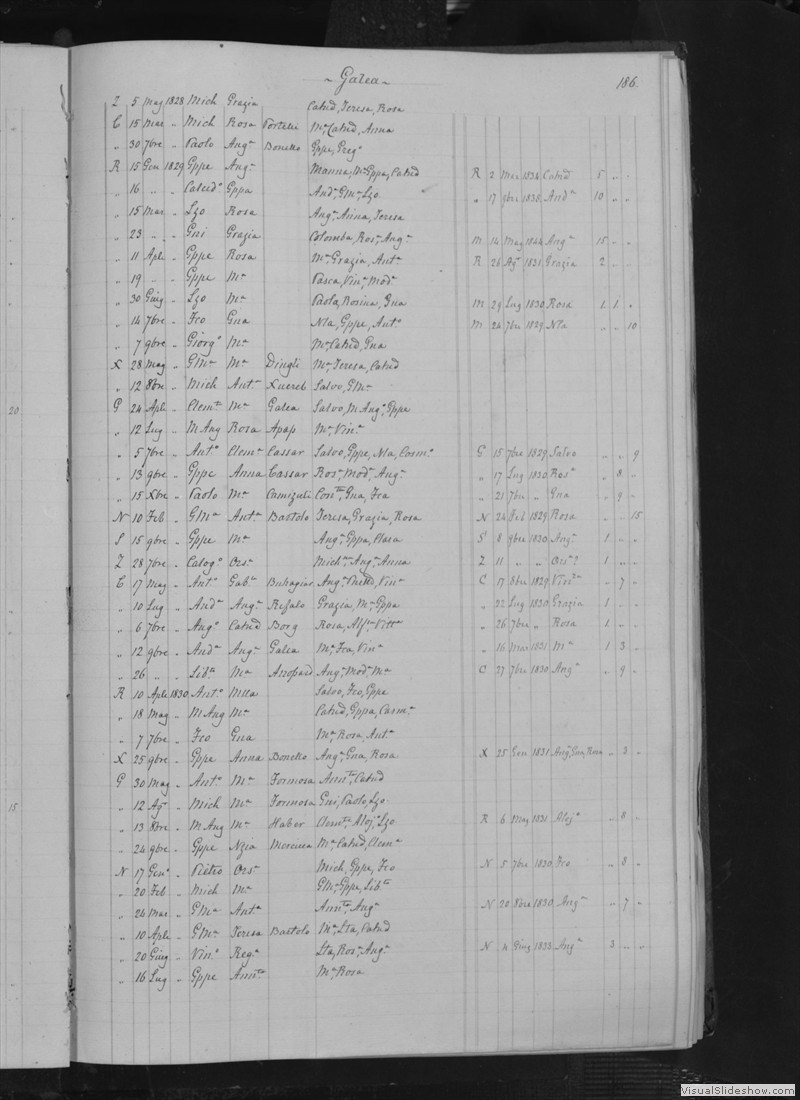 ~ Galea ~
186.
Z 5 Mag 1828 Mich Grazia Catnd, Teresa, Rosa
C 15 Mar " Mich Rosa Portelli Mª, Catnd, Anna
" 30 7bre " Paolo Angª Bonello Gppe, Gregº
R 15 Gen 1829 Gppe Angª Maª, Gppa, Catnd R 2 Mar 1834 Catnd 5 " "
" 16 " " Calcidº Gppa Andª, GMª, Lzo " 17 9bre 1838 Andª 10 " "
" 15 Mar " Lzo Rosa Angª, Anna, Teresa
" 23 " " Gni Grazia Colomba, Rosª, Angª M 14 Mag 1844 Angª 15 " "
" 11 Aple " Gppe Rosa Mª, Grazia, Antª R 26 Agº 1831 Grazia 2 " "
" 19 " " Gppe Mª Pasca, Vinª, Modª
" 30 Giug " Lzo Mª Paola, Rosina, Gna M 29 Lug 1830 Rosa 1 1 "
" 14 7bre " Fco Gna Nla, Gppe, Antº M 24 7bre 1829 Nla " " 10
" 7 9bre " Giorgº Mª Mª, Catnd, Gna
X 28 Mag " GMª Mª Dingli Mª, Teresa, Catnd
" 12 8bre " Mich Antª Xuereb Salvo, GMª
G 24 Aple " Clemte Mª Galea Salvo, M Angº, Gppa
" 12 Lug " M Ang Rosa Apap Mª, Vinª
" 5 7bre " Antº Clemª Cassar Salvo, Gppe, Nla, Carmª G 15 7bre 1829 Salvo " " 9
" 13 9bre " Gppe Anna Cassar Rosª, Modª, Angª " 17 Lug 1830 Rosª " 8 "
" 15 Xbre " Paolo Mª Camizuli Conta, Gna, Fra " 21 7bre " Gna " 9 "
N 10 Feb " GMª Antª Bastolo Teresa, Grazia, Rosa N 24 Feb 1829 Rosa " " 15
S 15 9bre " Gppe Mª Angª, Gppa, Clara S 8 9bre 1830 Angª 1 " "
Z 28 7bre " Calogº Orsª Michª, Angª, Anna Z 11 " " Orsª 1 " "
C 17 Mag " Antº Gabª Buhagiar Angª, Vinª C 17 8bre 1829 Vinª " 7 "
" 10 Lug " Andª Angª Refalo Grazia, Mª, Gppa " 22 Lug 1830 Grazia 1 " "
" 6 7bre " Angº Catnd Borg Rosa, Alfª, Vittª " 26 7bre " Rosa 1 " "
" 12 9bre " Andª Angª Galea Mª, Fra, Vinª " 16 Mar 1831 Mª 1 3 "
" 26 " " Libª Mª Angª, Modª, Mª C 27 7bre 1830 Angª " 9 "
R 10 Aple 1830 Antº Salvo, Fco, Gppe
" 18 Mag " M Ang Mª Catnd, Gppa, Carmª
" 7 7bre " Fco Gna Mª, Rosa, Antª
X 25 9bre " Gppe Anna Bonello Angª, Gna, Rosa X 25 Gen 1831 Angª, Gna, Rosa " 3 "
G 30 Mag " Antº Mª Formosa Annta, Catnd
" 12 Agº " Mich Mª Formosa Gni, Paolo, Lzo
" 13 8bre " M Ang Mª Haber Clemte, Alojº, Lzo R 6 Mag 1831 Alojº " 8 "
" 24 9bre " Gppe Nzia Mercieca Mª, Catnd, Clemª
N 17 Genº " Pietro Orsª Mich, Gppe, Fco N 5 7bre 1830 Fco " 8 "
" 20 Feb " Mich Mª GMª, Gppe, Libta
" 24 Mar " GMª Antª Annta, Angª N 20 8bre 1830 Angª " 7 "
" 10 Aple " GMª Teresa Bastolo Mª, Lta, Catnd
" 20 Giug " Vinº Regª Lta, Rosª, Angª N 4 Giug 1833 Angª 3 " "
" 16 Lug " Gppe Annta Mª, Rosa
20
15
VisualSlideshow.com